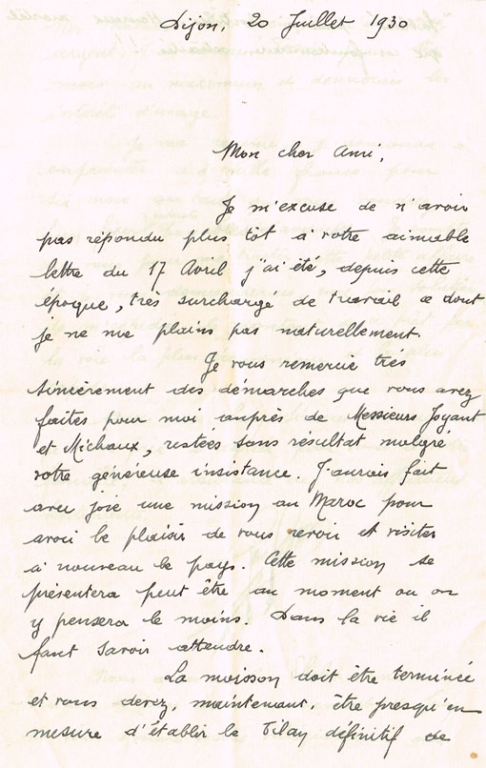 Dijon, 20 Juillet 1930
Mon cher Ami,
Je m'excuse de n'avoir
pas répondu plus tôt à votre aimable
lettre du 17 Avril j'ai été, depuis cette
époque, très surchargé de travail ce dont
je ne me plains pas naturellement.
Je vous remercie très
sincèrement des démarches que vous avez
faites pour moi auprès de Messieurs Joyant
et Michaux, restées sans résultat malgré
votre généreuse insistance. J'aurais fait
avec joie une mission au Maroc pour
avoir le plaisir de vous revoir et visiter
à nouveau le pays. Cette mission se
présentera peut être au moment où on
y pensera le moins. Dans la vie il
faut savoir attendre.
La moisson doit être terminée
et vous devez, maintenant, être presqu'en
mesure d'établir le bilan définitif de